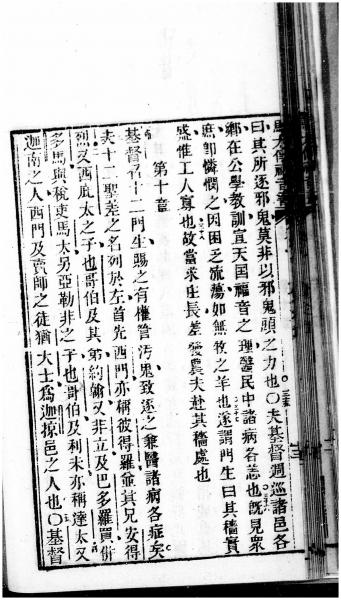 馬太傳福音書
曰其所逐邪鬼莫非以邪鬼頭之力也○夫基督週巡諸邑各
鄉在公學教訓宣天國福音之理醫民中諸病各恙也旣見衆
庶卽憐憫之因困乏流蕩如無牧之羊也遂謂門生曰其穡實
盛惟工人寡也故當求庄長差發農夫赴其穡處也
第十章
基督名十二門生賜之有權管污鬼致逐之兼醫諸病各症矣
夫十二聖差之名列於左首先西門亦稱彼得羅並其兄安得
烈又西庇太之子也哥伯及其弟約翰又非立及巴多羅買併
多馬與稅吏馬太另亞勒非之子也哥伯及利未亦稱達太又
迦南之人西門及賣師之徒猶大士爲迦掠邑之人也○基督